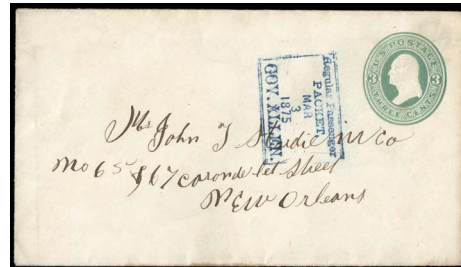 U.S. POSTAGE
3 3
THREE CENTS
Regular Passenger
PACKET,
MAR
3
1875
GOV. ALLEN.
Ms John T Hardie & Co
No 65 & 67 Carondelet Street
New Orleans